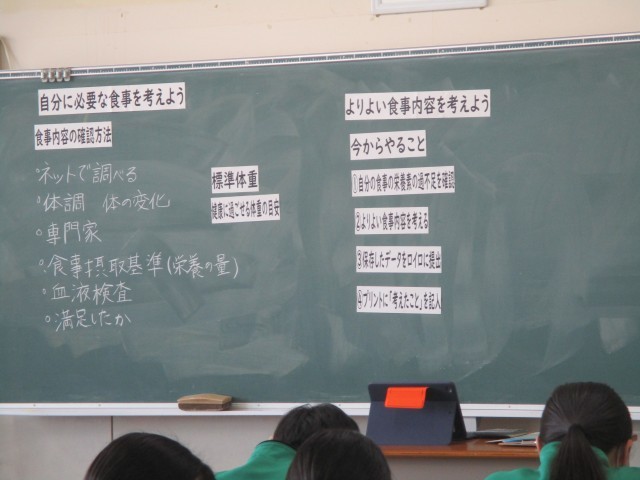 自分に必要な食事を考えよう
食事内容の確認方法
・ネットで調べる
・体調 体の変化
・専門家
・食事摂取基準(栄養の量)
・血液検査
・満足したか
標準体重
健康に過ごせる体重の目安
よりよい食事内容を考えよう
今からやること
①自分の食事の栄養素の過不足を確認
②よりよい食事内容を考える
③保存したデータをロイロに提出
④プリントに「考えたこと」を記入